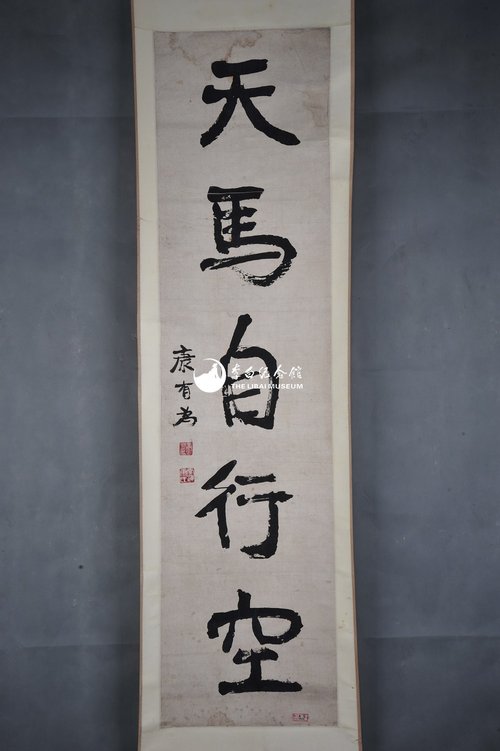 天馬自行空
康有為
李白纪念馆
THE LIBAI MUSEUM